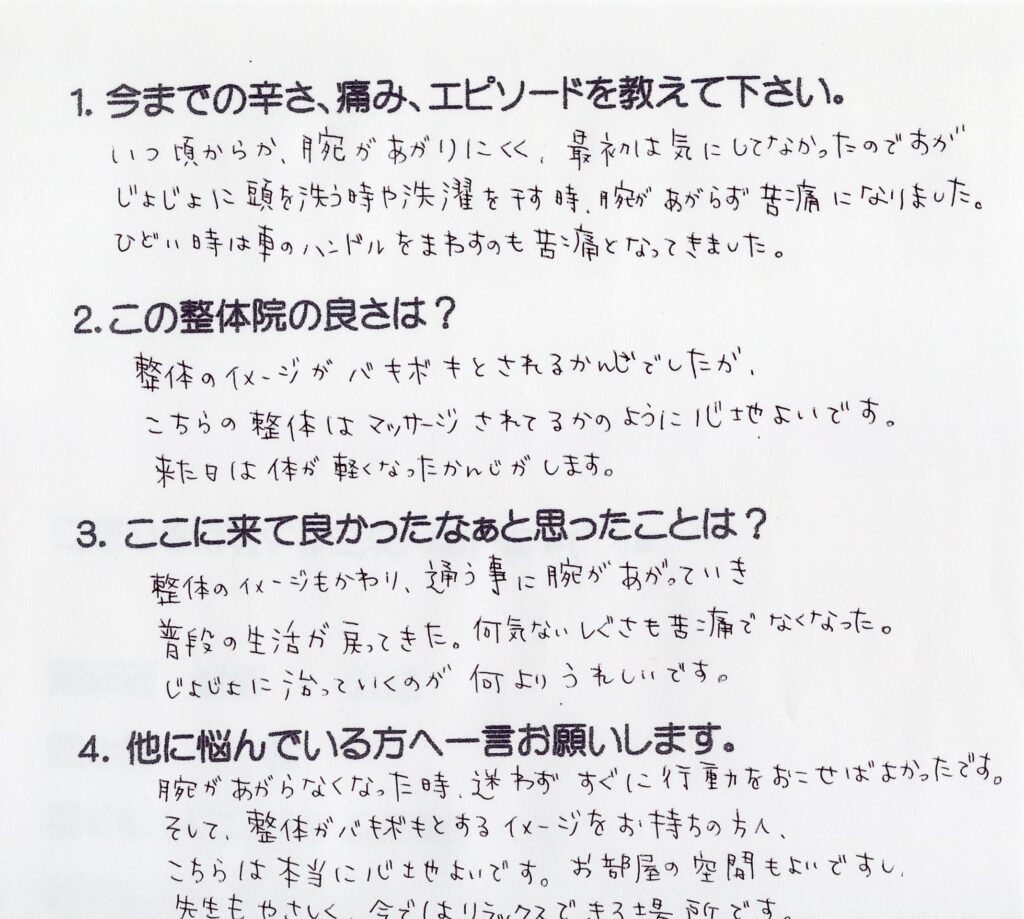 1. 今までの辛さ、痛み、エピソードを教えて下さい。
いつ頃からか、腕があがりにくく、最初は気にしてなかったのですが
じょじょに頭を洗う時や洗濯を干す時、腕があがらず苦痛になりました。
ひどい時は車のハンドルをまわすのも苦痛となってきました。
2. この整体院の良さは？
整体のイメージがバキボキとされるかんじでしたが、
こちらの整体はマッサージされてるかのように心地よいです。
来た日は体が軽くなったかんじがします。
3. ここに来て良かったなぁと思ったことは？
整体のイメージもかわり、通う事に腕があがっていき
普段の生活が戻ってきた。何気ないしぐさも苦痛でなくなった。
じょじょに治っていくのが何よりうれしいです。
4. 他に悩んでいる方へ一言お願いします。
腕があがらなくなった時、迷わずすぐに行動をおこせばよかったです。
そして、整体がバキボキとするイメージをお持ちの方へ、
こちらは本当に心地よいです。お部屋の空間もよいですし、
先生もやさしく、今ではリラックスできる場所です。